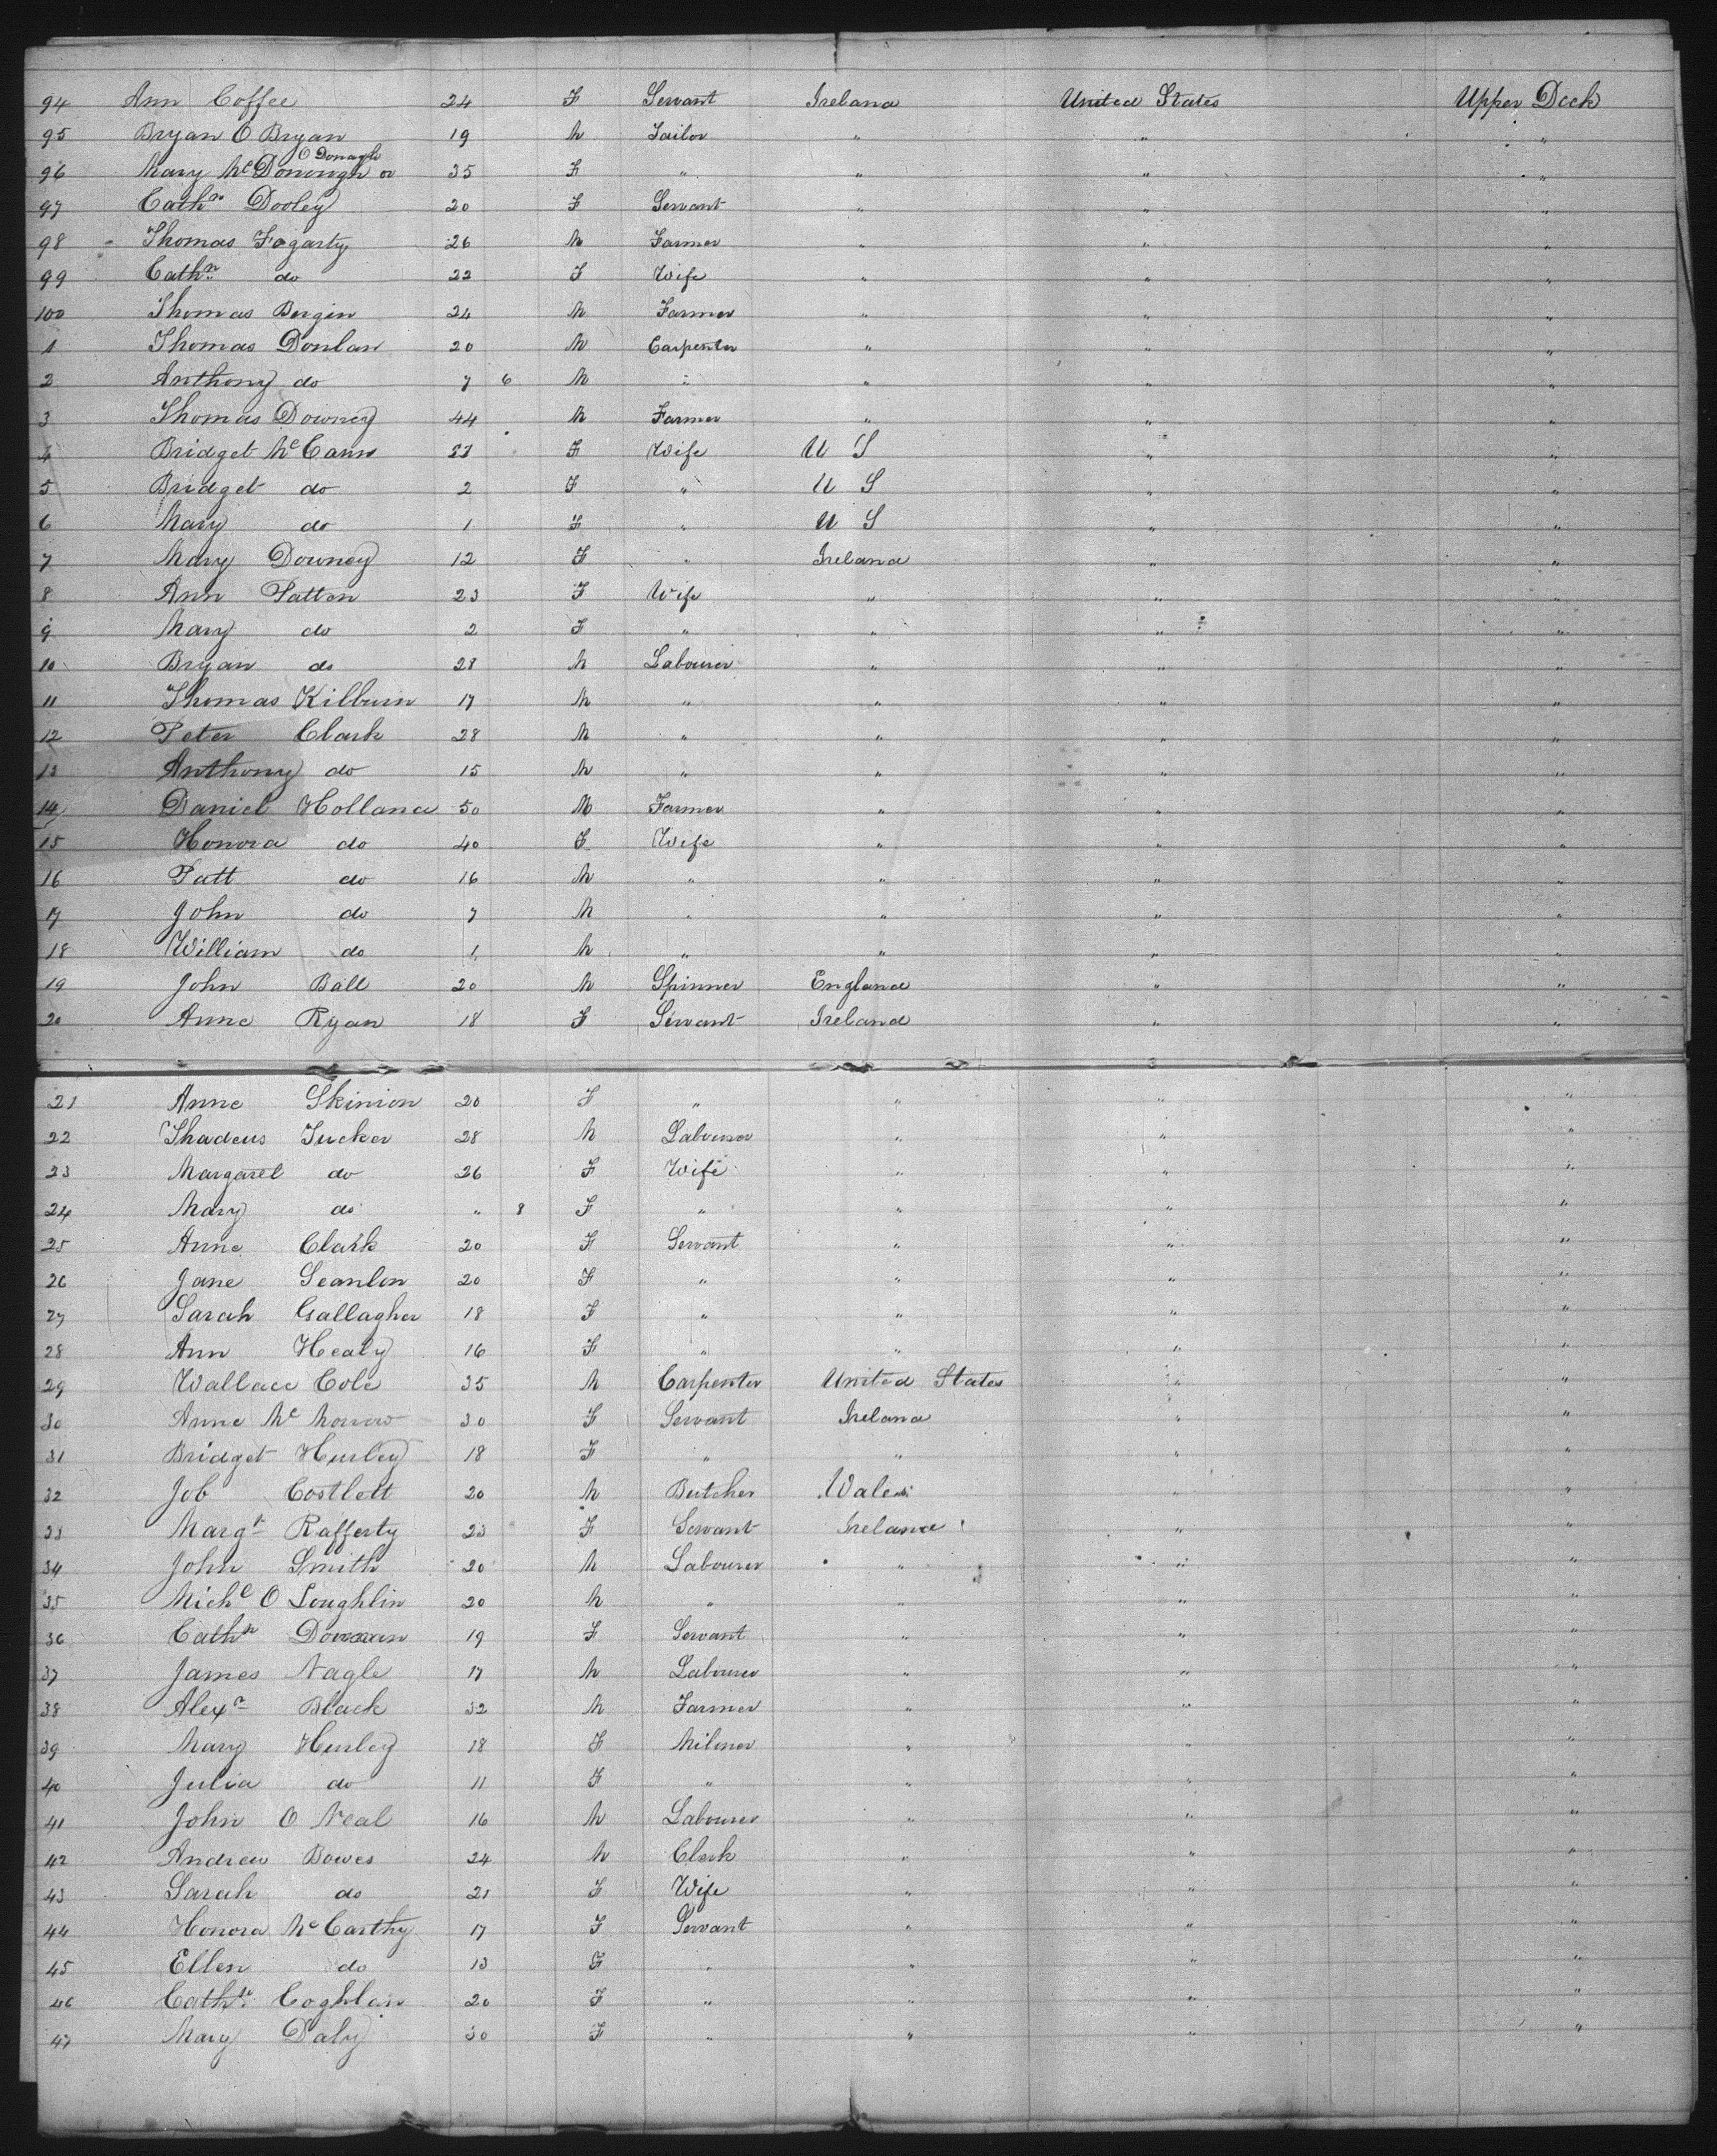 94 Ann Coffee 24 F Servant Ireland United States Upper Deck
95 Bryan O Bryan 19 M Tailor " " "
O Donagh
96 Mary Mc Donough or 35 F " " " "
97 Cathn Dooley 20 F Servant " " "
98 Thomas Fogarty 26 M Farmer " " "
99 Cathn do 22 F Wife " " "
100 Thomas Bergin 24 M Farmer " " "
1 Thomas Donlan 20 M Carpenter " " "
2 Anthony do 7 6 M " " " "
3 Thomas Downey 44 M Farmer " " "
4 Bridget Mc Cann 23 F Wife U S " "
5 Bridget do 2 F " U S " "
6 Mary do 1 F " U S " "
7 Mary Downey 12 F " Ireland " "
8 Ann Patten 23 F Wife " " "
9 Mary do 2 F " " " "
10 Bryan do 28 M Labourer " " "
11 Thomas Kilburn 17 M " " " "
12 Peter Clark 28 M " " " "
13 Anthony do 15 M " " " "
14 Daniel Holland 50 M Farmer " " "
15 Honora do 40 F Wife " " "
16 Patt do 16 M " " " "
17 John do 7 M " " " "
18 William do 1 M " " " "
19 John Ball 20 M Spinner England " "
20 Anne Ryan 18 F Servant Ireland " "
21 Anne Skinion 20 F " " " "
22 Thadeus Tucker 28 M Labourer " " "
23 Margaret do 26 F Wife " " "
24 Mary do " 8 F " " " "
25 Anne Clark 20 F Servant " " "
26 Jane Scanlon 20 F " " " "
27 Sarah Gallagher 18 F " " " "
28 Ann Healy 16 F " " " "
29 Wallace Cole 35 M Carpenter United States " "
30 Anne Mc Morrow 30 F Servant Ireland " "
31 Bridget Hurley 18 F " " " "
32 Job Costlett 20 M Butcher Wales " "
33 Margt Rafferty 23 F Servant Ireland " "
34 John Smith 20 M Labourer " " "
35 Michl O Loughlin 20 M " " " "
36 Cathn Donovan 19 F Servant " " "
37 James Nagle 17 M Labourer " " "
38 Alexr Black 32 M Farmer " " "
39 Mary Hurley 18 F Miliner " " "
40 Julia do 11 F " " " "
41 John O Neal 16 M Labourer " " "
42 Andrew Bowes 24 M Clerk " " "
43 Sarah do 21 F Wife " " "
44 Honora Mc Carthy 17 F Servant " " "
45 Ellen do 13 F " " " "
46 Cathn Coghlan 20 F " " " "
47 Mary Daly 30 F " " " "